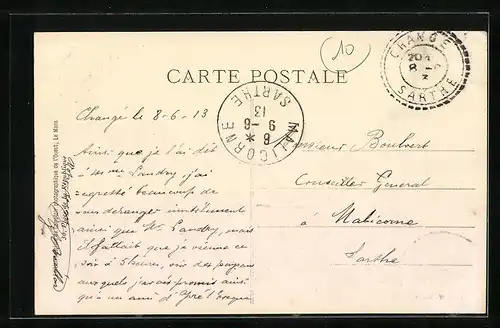 10
CARTE POSTALE
CHANGÉ
SARTHE
MALICORNE
SARTHE
8 *
9 -6
13
Changé le 8-6-13
Ainsi que je l'ai dit
à Mme Landry j'ai
regretté beaucoup de
vous déranger inutilement
ainsi que Mr. Landry, mais
il fallait que je vienne ce
soir à 5 heures, voir des
auxquels j'avais promis ainsi
qu'à un ami d'Yvré l'Evêque
Monsieur Boulvert
Conseiller Général
à Malicorne
Sarthe
de l'Ouest, Le Mans